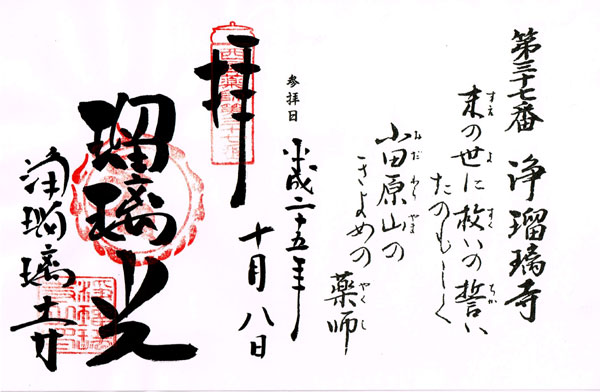 第三十七番 浄瑠璃寺
末の世に救いの誓い
たのもしく
小田原山の
きよめの 薬師
すえ よ すく ちか
おだ わら やま
やくし
参拝日 平成二十五年
十月八日
拝
瑠璃光
浄瑠璃寺